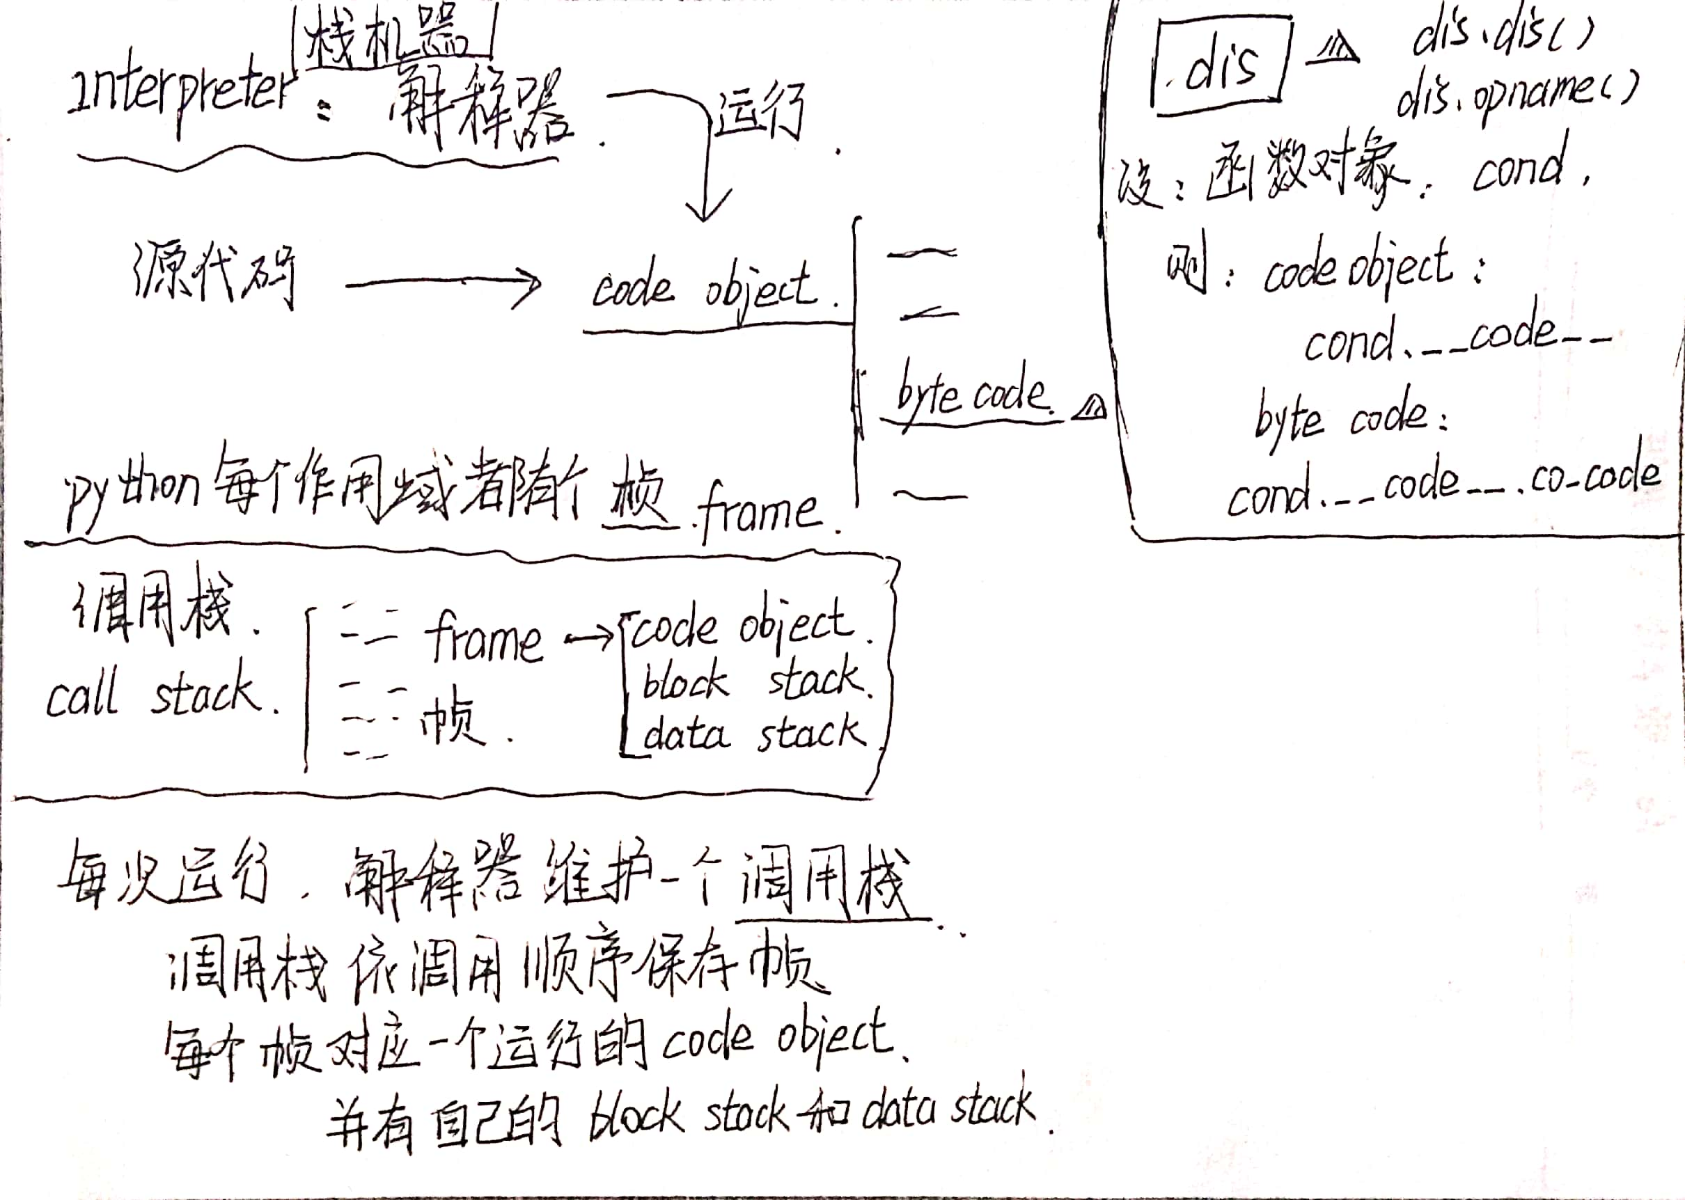 栈机器
interpreter: 解释器.
运行.
源代码
code object.
byte code.
python每个作用域都有个 帧.frame.
调用栈.
call stack.
frame
帧.
code object.
block stack.
data stack
每次运行. 解释器维护一个调用栈..
调用栈依调用顺序保存帧
每个帧对应一个运行的code object.
并有自己的 block stack和data stack.
.dis
dis.dis()
dis.opname()
设:函数对象. cond.
则: code object:
cond.__code__
byte code:
cond.__code__.co_code